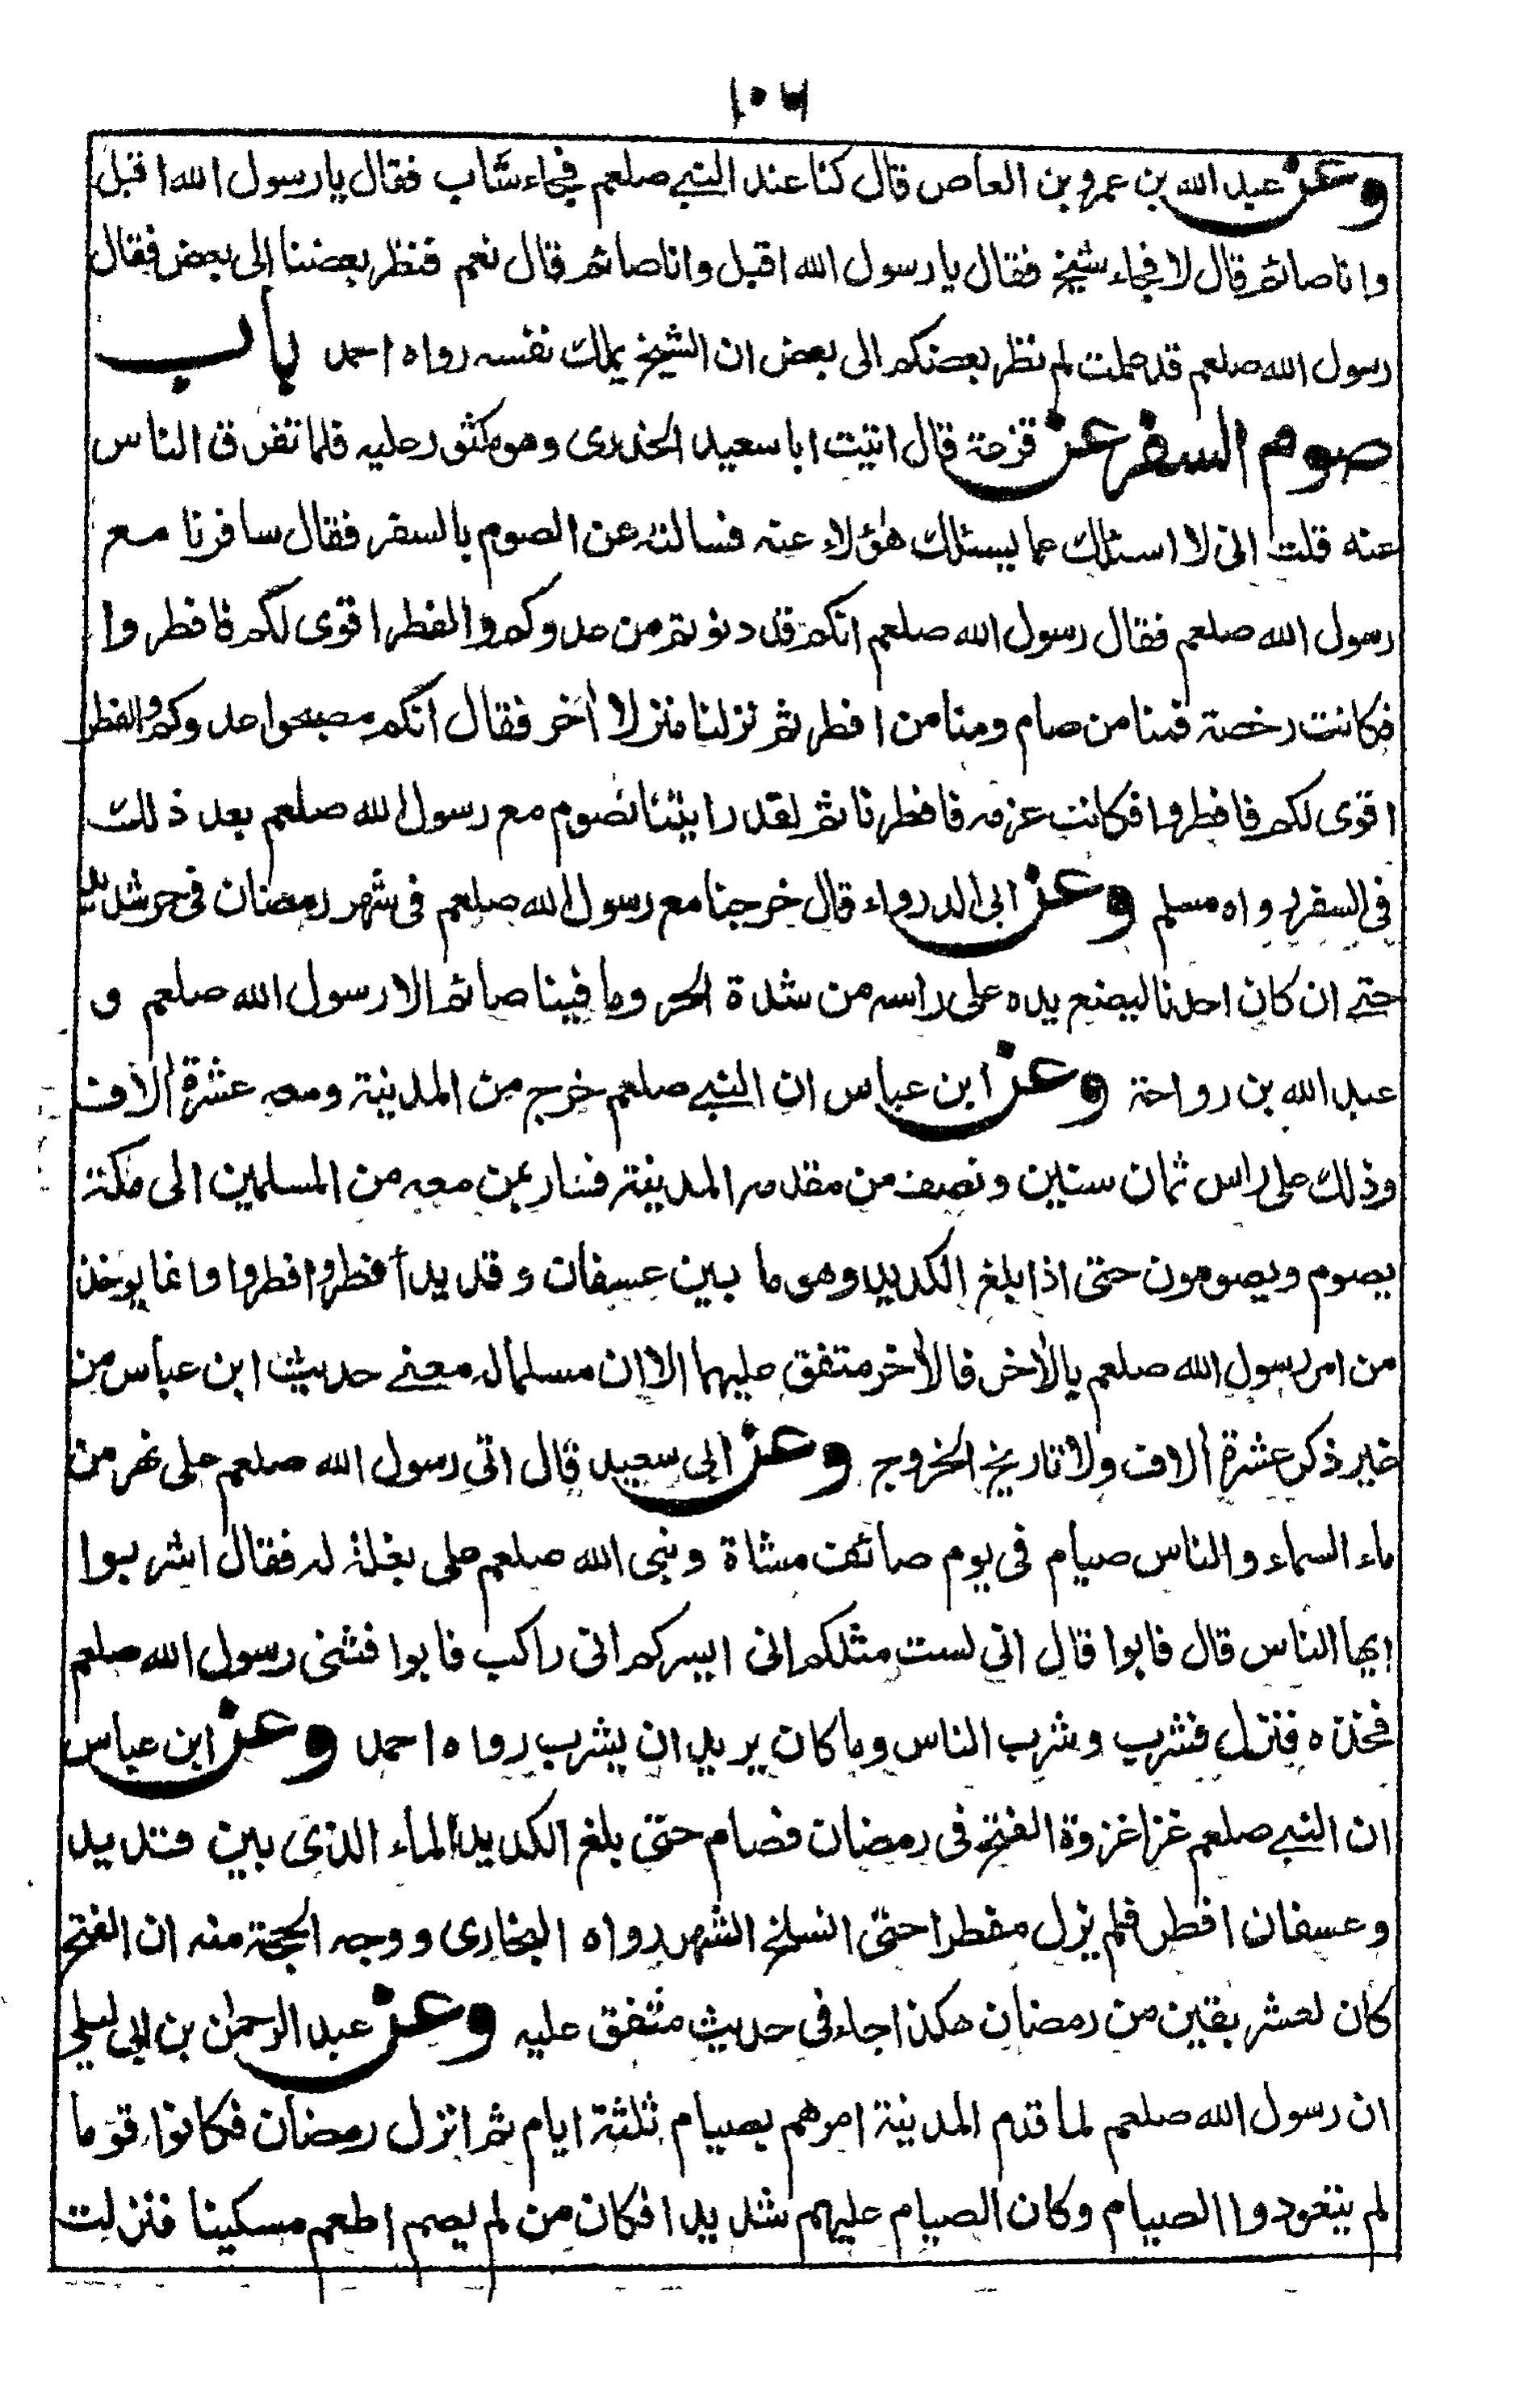 ١٠٦
وعن عبد الله بن عمرو بن العاص قال كنا عند النبي صلعم فجاء شاب فقال يا رسول الله اقبل
وانا صائم قال لا فجاء شيخ فقال يا رسول الله اقبل وانا صائم قال نعم فنظر بعضنا الى بعض فقال
رسول الله صلعم قد علمت لم نظر بعضكم الى بعض ان الشيخ يملك نفسه رواه احمد باب
صوم السفر عن قزعة قال اتيت ابا سعيد الخدرى وهو مكثور عليه فلما تفرق الناس
عنه قلت انى لا اسئلك عما يسئلك هؤلاء عنه فسالته عن الصوم بالسفر فقال سافرنا مع
رسول الله صلعم فقال رسول الله صلعم انكم قد دنوتم من عدوكم والفطر اقوى لكم فافطروا
فكانت رخصة فمنا من صام ومنا من افطر ثم نزلنا منزلا أخر فقال انكم مصبحوا عدوكم والفطر
اقوى لكم فافطروا فكانت عزمه فافطرنا ثم لقد رايتنا نصوم مع رسول الله صلعم بعد ذلك
فى السفر رواه مسلم وعن ابى الدرداء قال خرجنا مع رسول الله صلعم فى شهر رمضان فى حر شديد
حتى ان كان احدنا ليضع يده على راسه من شدة الحر وما فينا صائم الا رسول الله صلعم و
عبد الله بن رواحة وعن ابن عباس ان النبي صلعم خرج من المدينة ومعه عشرة الاف
وذلك على راس ثمان سنين ونصف من مقدمه المدينة فسار بمن معه من المسلمين الى مكة
يصوم ويصومون حتى اذا بلغ الكديد وهو ما بين عسفان وقديد أفطر وافطروا وانما يوخذ
من امر رسول الله صلعم بالأخر فالأخر متفق عليهما الا ان مسلما له معنى حديث ابن عباس من
غير ذكر عشرة ألاف ولا تاريخ الخروج وعن ابى سعيد قال اتى رسول الله صلعم على نهر من
ماء السماء والناس صيام فى يوم صائف مشاة ونبى الله صلعم على بغلة له فقال اشربوا
ايها الناس قال فابوا قال انى لست مثلكم انى ايسركم انى راكب فابوا فثنى رسول الله صلعم
فخذه فنزل فشرب وشرب الناس وما كان يريد ان يشرب رواه احمد وعن ابن عباس
ان النبي صلعم غزا غزوة الفتح فى رمضان فصام حتى بلغ الكديد الماء الذى بين قديد
وعسفان افطر فلم يزل مفطرا حتى انسلخ الشهر رواه البخارى ووجه الحجة منه ان الفتح
كان لعشر بقين من رمضان هكذا جاء فى حديث متفق عليه وعن عبد الرحمٰن بن ابى ليلى
ان رسول الله صلعم لما قدم المدينة امرهم بصيام ثلثة ايام ثم انزل رمضان فكانوا قوما
لم يتعودوا الصيام وكان الصيام عليهم شديدا فكان من لم يصم اطعم مسكينا فنزلت